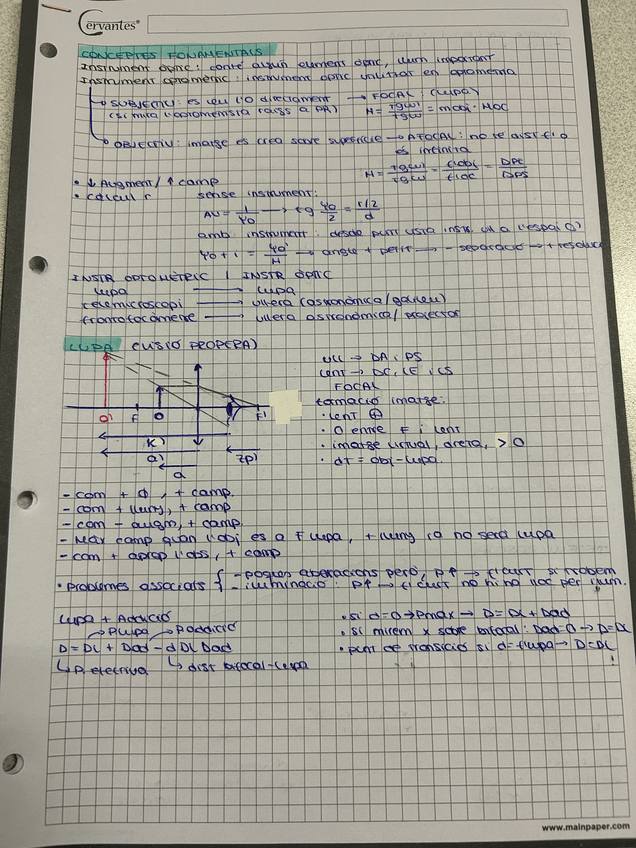 Cervantes®
CONCEPTES FONAMENTALS
Instrument òptic: conté algún element òptic, llum important
Instrument optomètric: instrument òptic utilitzat en optometria
SUBJECTIU: es veu l'O directament → FOCAL (lupa)
(si mira l'optometrista raigs a PR) M = tgw'/tgw = mobj · Moc
OBJECTIU: imatge es crea sobre superfície → AFOCAL: no te dist f i o
és infinita
M = tgw'/tgw = f'obj/f'oc = DPE/DPS
• ↓ Augment / ↑ camp
• càlcul r
sense instrument:
AV = 1/φo → tg φo/2 = r/2/d
amb instrument: desde punt vista instr. ull a l'espai O'
φo + i = φo'/M → angle + petit → - separació → + resolució
INSTR OPTOMÈTRIC | INSTR ÒPTIC
lupa → lupa
telemicroscopi → ullera (astronòmica/galileu)
frontofocòmetre → ullera astronòmica/ projector
LUPA (VISIÓ PROPERA)
ull → DA i PS
lent → DC, LE i CS
FOCAL
formació imatge:
• lent ⊕
• O entre F i lent
• imatge virtual, dreta, > O
• dT = obj-lupa
O' F O F'
K'
a'
zp'
a
- com + φ, + camp
- com + lluny, + camp
- com - augm, + camp
- Max camp quan l'obj es a F lupa, + lluny ja no serà lupa
- com + aprop l'obs, + camp
• problemes associats { - poques aberracions però, P↑ → f' curt si trobem
- iluminació: P↑ → f' curt no hi ha lloc per ilum.
Lupa + Addició
Plupa Paddició
D = DL + Dad - d DL Dad
P. efectiva dist bifocal-lupa
• si d=0 → Pmax → D = DL + Dad
• si mirem x sobre bifocal: Dad=0 → D=DL
• punt de transició si d=f'lupa → D=DL
www.mainpaper.com